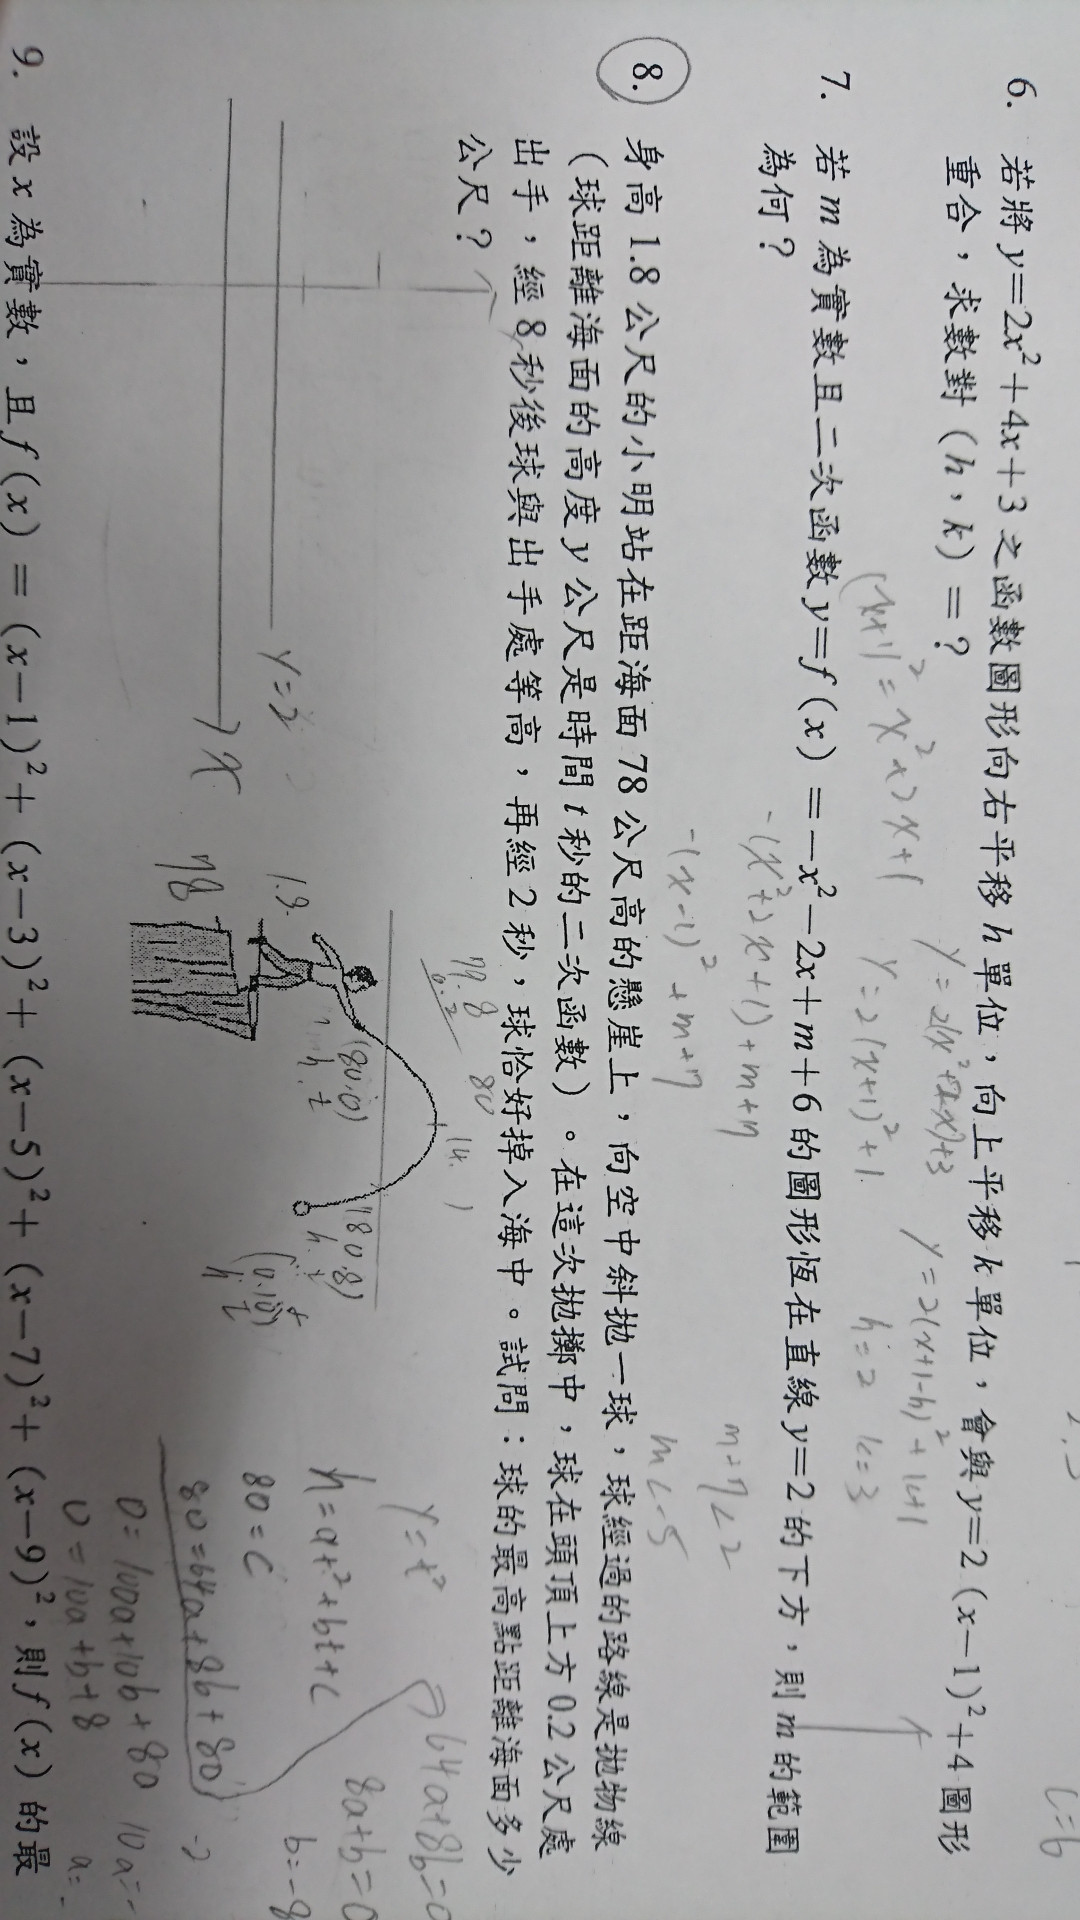 6. 若將 y=2x²+4x+3 之函數圖形向右平移 h 單位，向上平移 k 單位，會與 y=2(x-1)²+4 圖形
重合，求數對(h，k)=？
y=2(x+1-h)²+k+1
(x+1)²=x²+2x+1
y=2(x+1)²+1
h=2 k=3
7. 若 m 為實數且二次函數 y=f(x)=-x²-2x+m+6 的圖形恆在直線 y=2 的下方，則 m 的範圍
為何？
-(x²+2x+1)+m+7
m+7<2
-(x-1)²+m+7
m<-5
8. 身高 1.8 公尺的小明站在距海面 78 公尺高的懸崖上，向空中斜拋一球，球經過的路線是拋物線
(球距離海面的高度 y 公尺是時間 t 秒的二次函數)。在這次拋擲中，球在頭頂上方 0.2 公尺處
出手，經 8 秒後球與出手處等高，再經 2 秒，球恰好掉入海中。試問：球的最高點距離海面多少
公尺？
79.8
0.2
80
(4. )
(80.0)
h. t
(80.8)
h. t
(0.10)
h t
78
y=2
x
y=t²
h=at²+bt+c
80=c
80=64a+8b+80
0=100a+10b+80
0=10a+b+8
64a+8b=0
8a+b=0
b=-8
10a=-
a=
c=6
9. 設 x 為實數，且 f(x)=(x-1)²+(x-3)²+(x-5)²+(x-7)²+(x-9)²，則 f(x) 的最